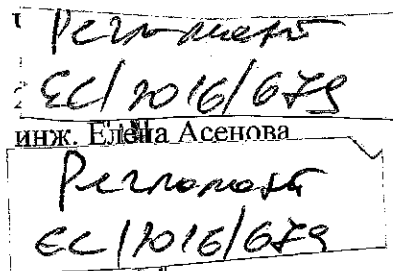 Регламент
ЕС/2016/679
инж. Елена Асенова
Регламент
ЕС/2016/679